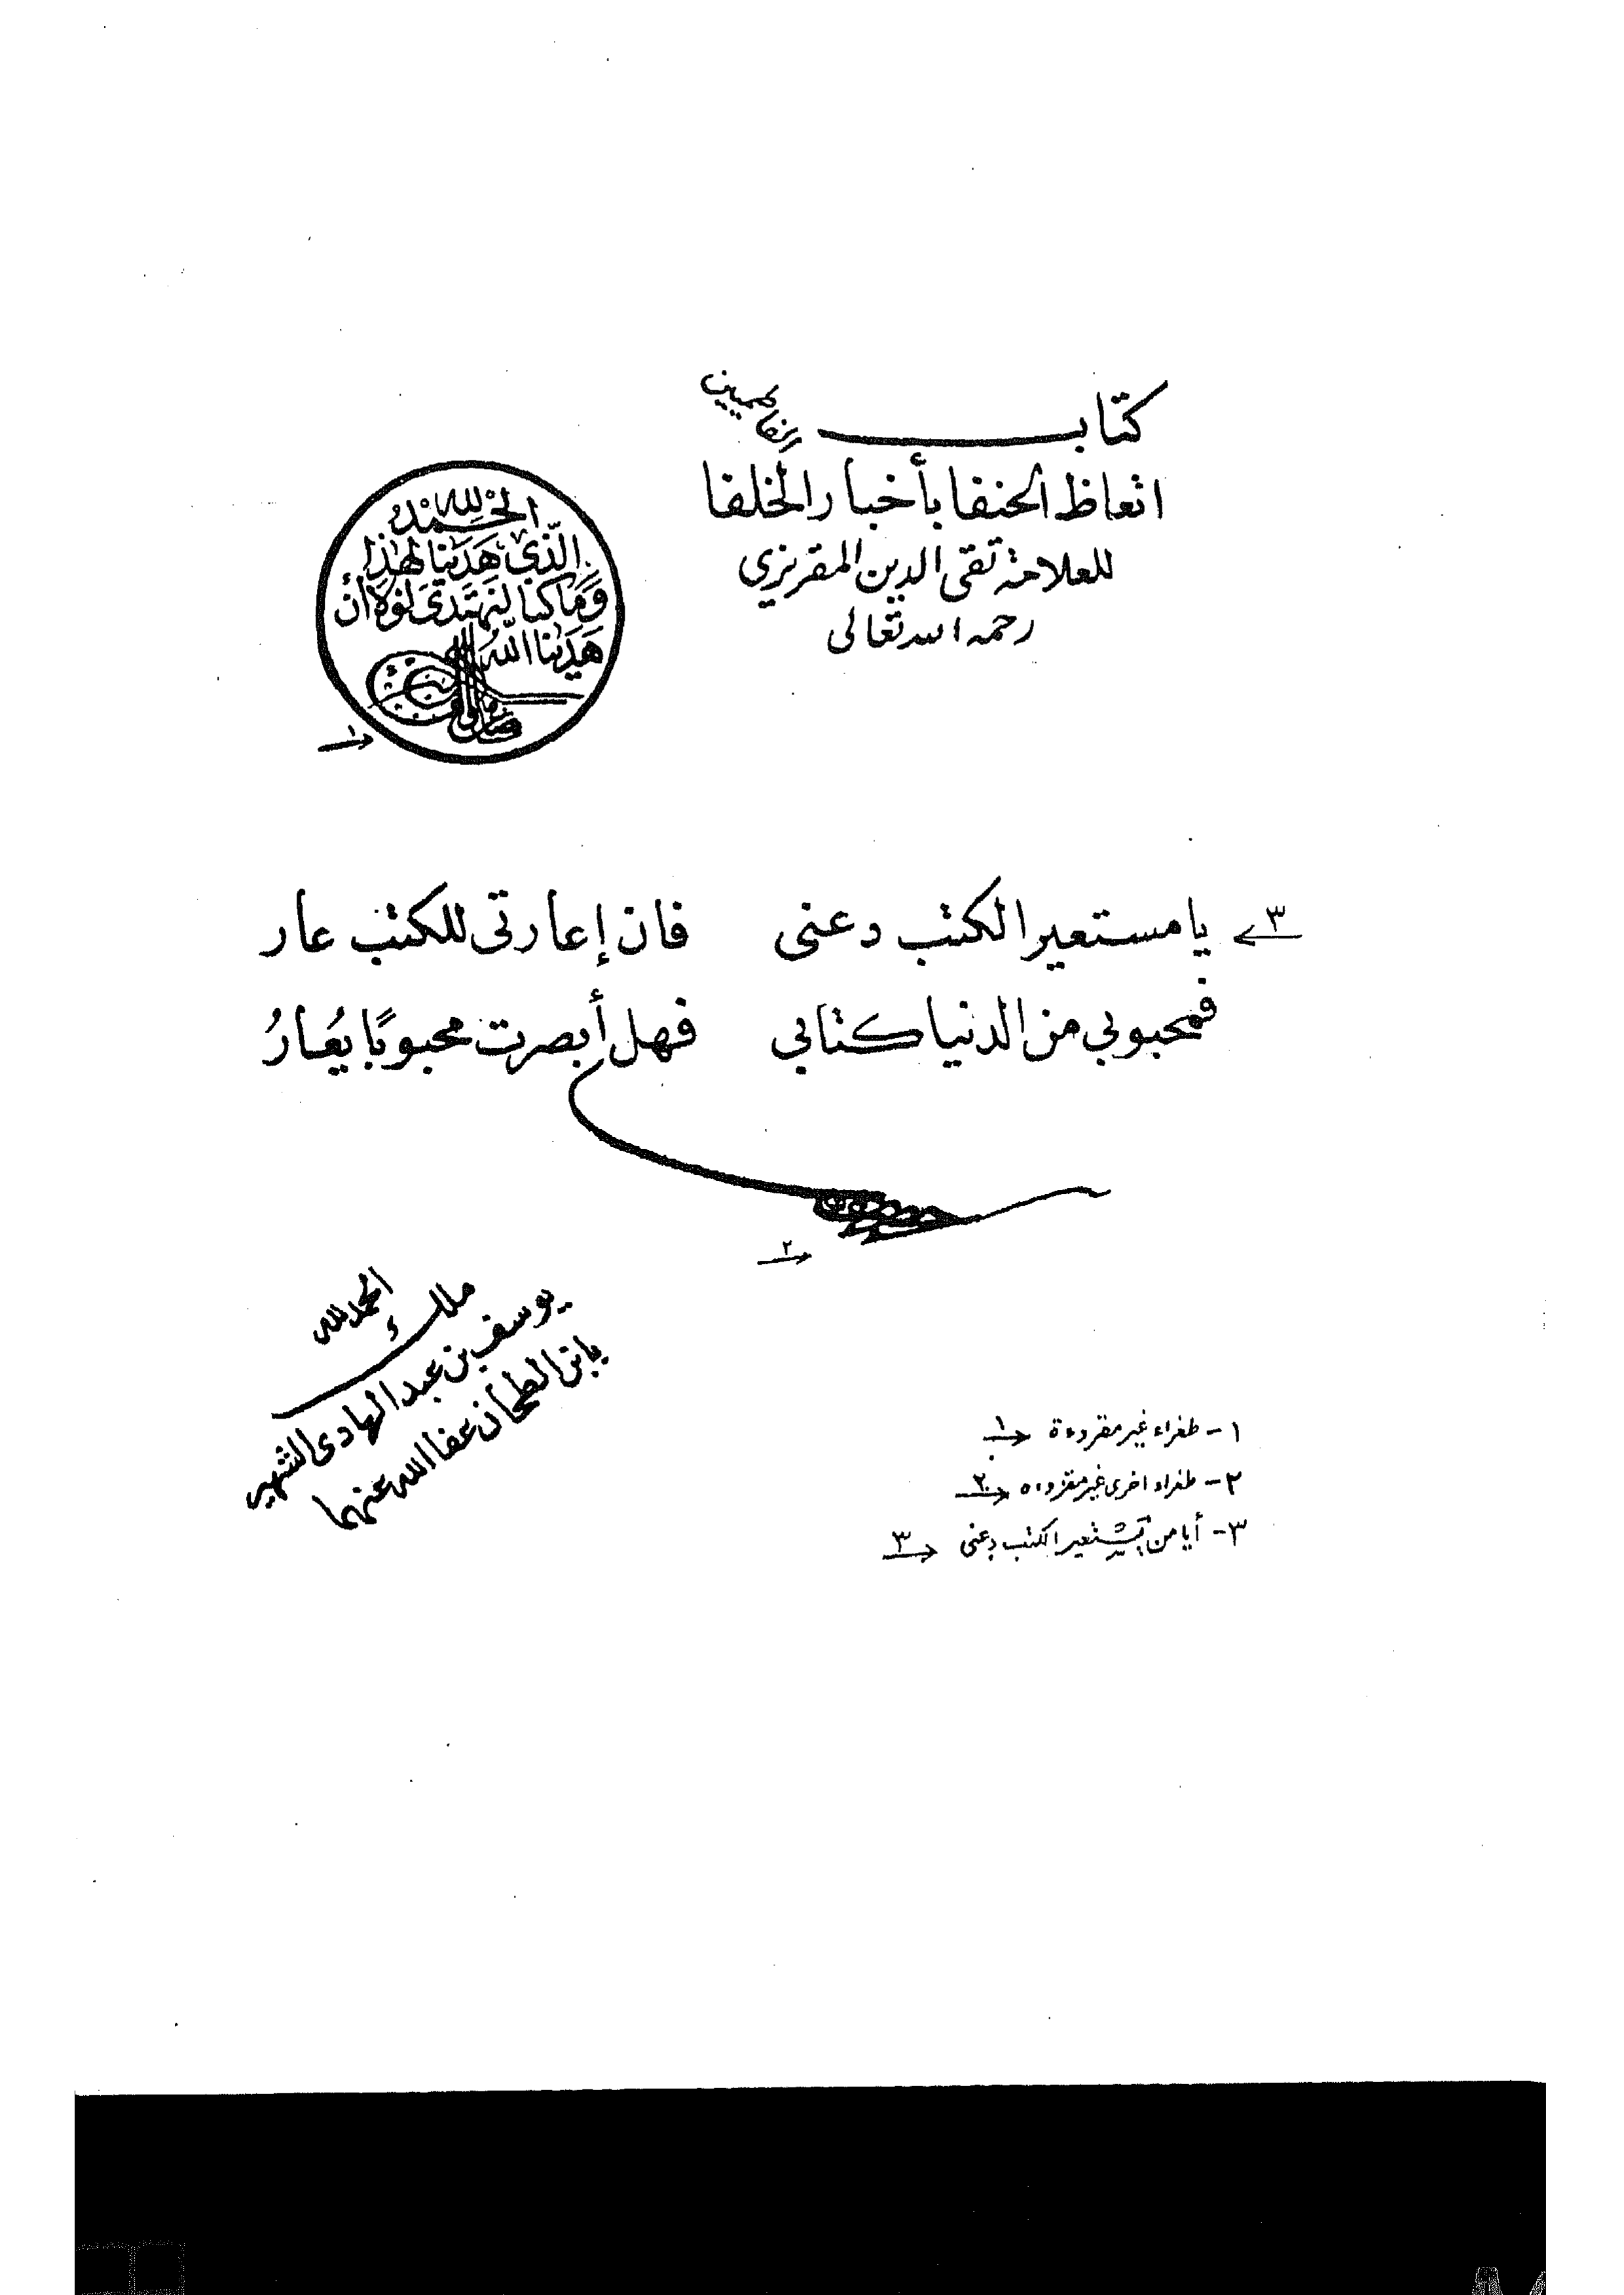 كتاب
الفاطميين
اتعاظ الحنفا بأخبار الخلفا
للعلامة تقى الدين المقريزي
رحمه الله تعالى
الحمد لله
الذي هدينا لهذا
وما كنا لنهتدى لولا أن
هدينا الله
١
٣ يا مستعير الكتب دعنى فان إعارتى للكتب عار
فمحبوبي من الدنيا كتابي فهل أبصرت محبوبًا يُعارُ
٢
الحمد لله
ملك
يوسف بن عبد الهادى الشهير
بابن الطحان عفا الله عنهما
١- طغراء غير مقروءة ١
٢- طغراء اخرى غير مقروءه ٢
٣- أيا من يستعير الكتب دعنى ٣